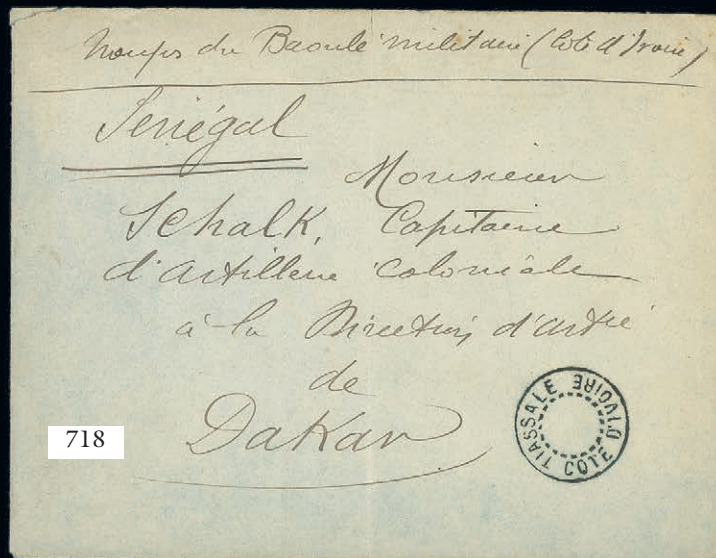 Troupes du Baoulé militaire (Côte d'Ivoire)
Sénégal
Monsieur
Schalk, Capitaine
d'artillerie coloniale
à la Direction d'artie
de
Dakar
718
TIASSALE COTE D'IVOIRE